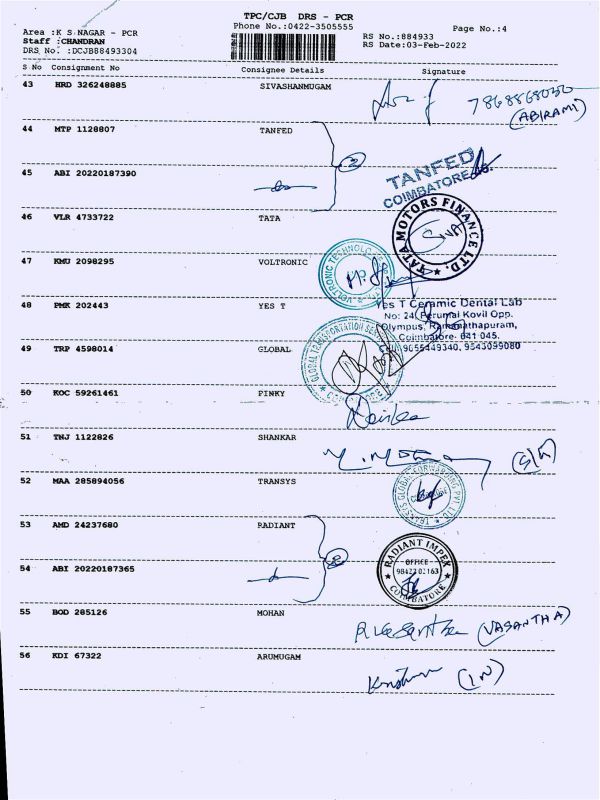 TPC/CJB DRS - PCR
Area :K S NAGAR - PCR Phone No.:0422-3505555 Page No.:4
Staff :CHANDRAN RS No.:884933
DRS No. :DCJB88493304 RS Date:03-Feb-2022
S No Consignment No Consignee Details Signature
43 HRD 326248885 SIVASHANMUGAM
7868868030
(ABIRAMI)
44 MTP 1128807 TANFED
2
TANFED
COIMBATORE
45 ABI 20220187390
46 VLR 4733722 TATA
TATA MOTORS FINANCE LTD.
SIVA
47 KMU 2098295 VOLTRONIC
VOLTRONIC TECHNOLOGY
48 PMK 202443 YES T
Yes T Ceramic Dental Lab
No: 24, Perumal Kovil Opp.
Olympus, Ramanathapuram,
Coimbatore- 641 045.
9655449340, 9543099080
49 TRP 4598014 GLOBAL
GLOBAL TRANSPORTATION
50 KOC 59261461 PINKY
51 TNJ 1122826 SHANKAR
52 MAA 285894056 TRANSYS
GLOBAL FORWARDING PVT LTD
53 AMD 24237680 RADIANT
2
RADIANT IMPEX
OFFICE
COIMBATORE
54 ABI 20220187365
55 BOD 285126 MOHAN
(VASANTHA)
56 KDI 67322 ARUMUGAM